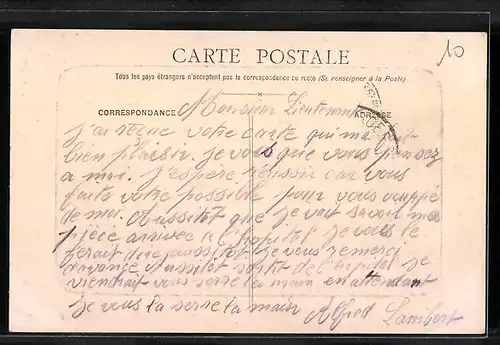 10
CARTE POSTALE
Tous les pays étrangers n'acceptent pas la correspondance au recto (Se renseigner à la Poste)
CORRESPONDANCE
ADRESSE
Monsieur Lieutenant
j'ai reçue votre carte qui ma fait
bien plaisir. je vois que vous pensez
a moi. j'espère réussir car vous
faite votre possible pour vous occuppé
de moi. Aussitot que je vait savoir mes
pièce arrivée a l'hopital je vous le
ferait dire aussitot je vous remerci
d'avance Aussitot sortit de l'hopital je
viendrait vous serre la main en attendant
je vous la serre la main Alfred Lambert